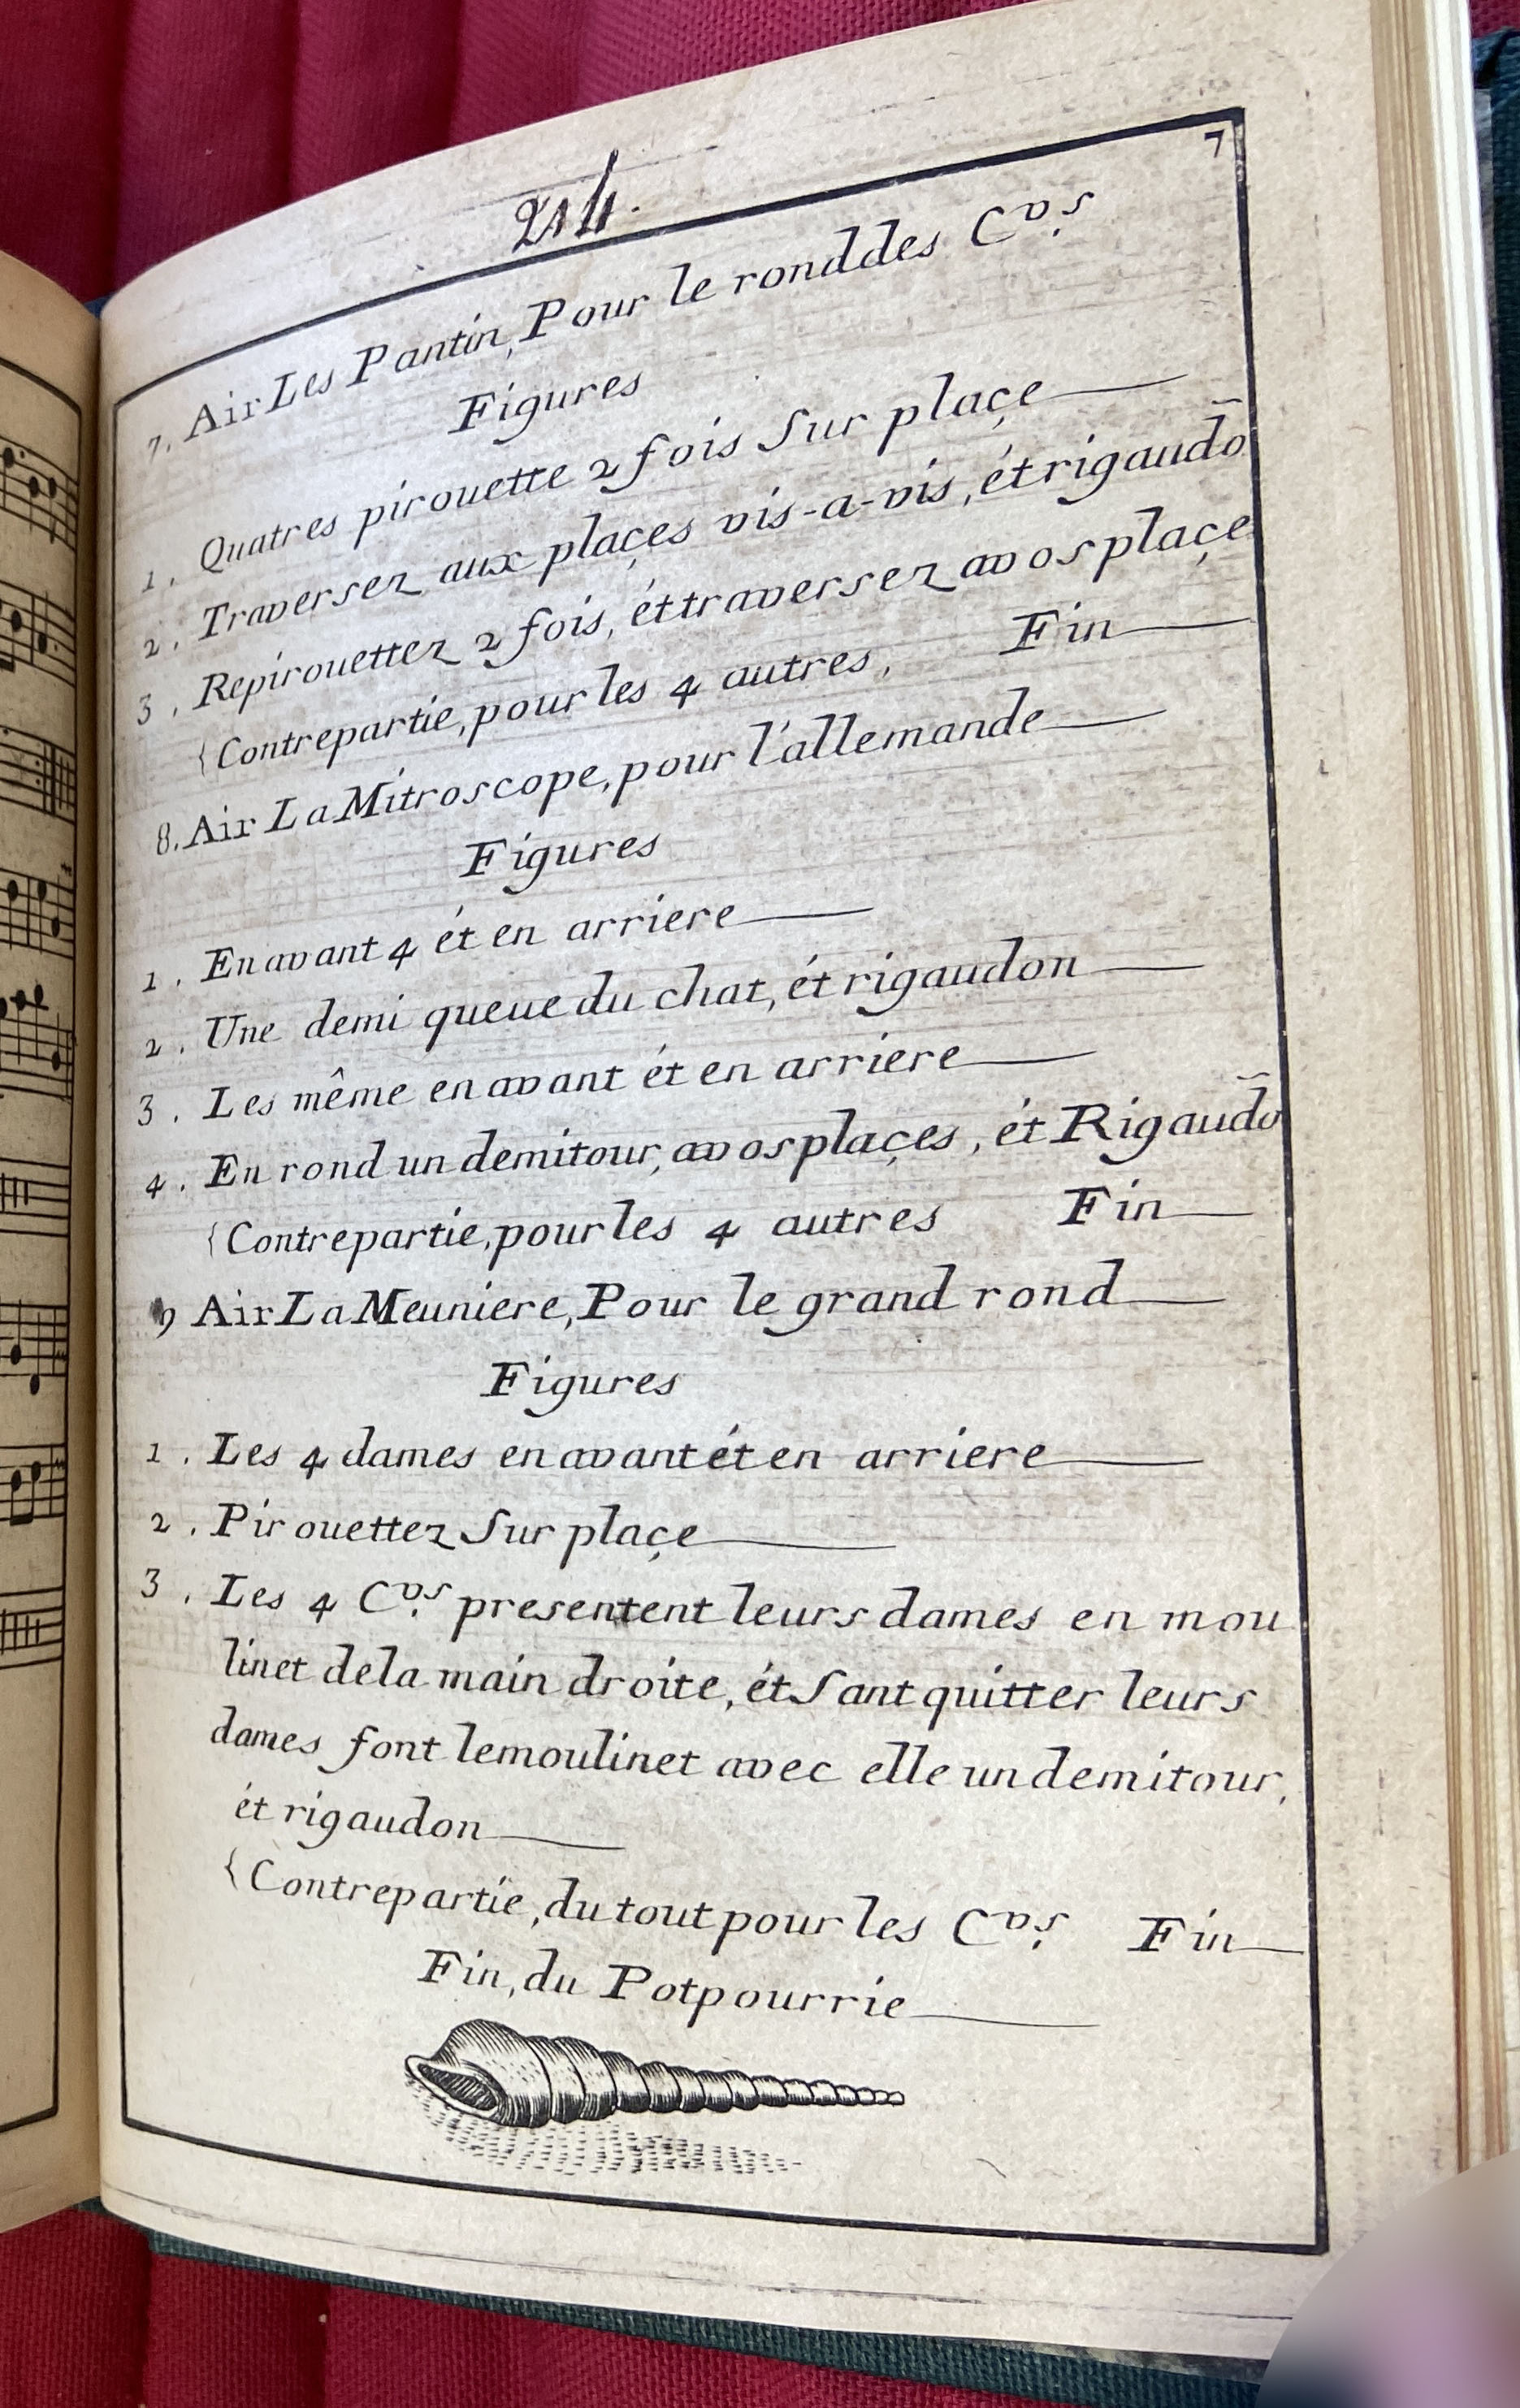 214.
7
7. Air Les Pantin, Pour le rond des C.vs
Figures
1. Quatres pirouette 2 fois Sur plaçe
2. Traversez aux plaçes vis-a-vis, ét rigaudō
3. Repirouettez 2 fois, ét traversez a vos plaçe
{Contrepartie, pour les 4 autres, Fin
8. Air La Mitroscope, pour l'allemande
Figures
1. En avant 4 ét en arriere
2. Une demi queue du chat, ét rigaudon
3. Les même en avant ét en arriere
4. En rond un demi tour, a vos plaçes, ét Rigaudō
{Contrepartie, pour les 4 autres Fin
9 Air La Meuniere, Pour le grand rond
Figures
1. Les 4 dames en avant ét en arriere
2. Pirouettez Sur plaçe
3. Les 4 C.vs presentent leurs dames en mou
linet de la main droite, ét Sant quitter leurs
dames font le moulinet avec elle un demi tour,
ét rigaudon
{Contrepartie, du tout pour les C.vs Fin
Fin, du Potpourrie